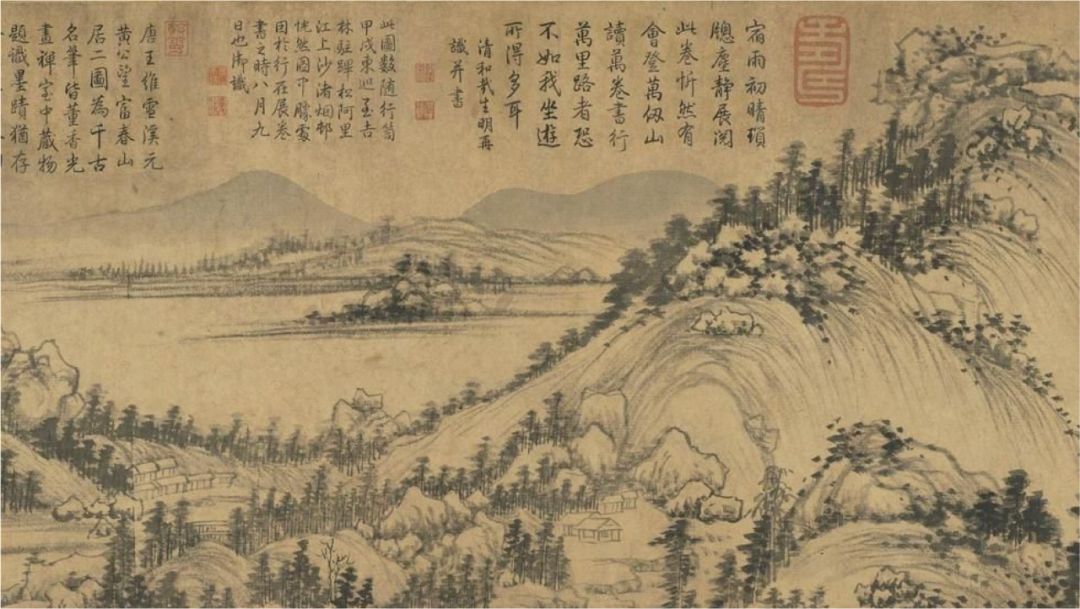 宿雨初晴瑣
牕塵靜展閲
此卷忻然有
會登萬仞山
讀萬卷書行
萬里路者恐
不如我坐遊
所得多耳
清和哉生明再
識并書
此圖數隨行笥
甲戌東巡至吉
林駐蹕松阿里
江上沙渚烟邨
恍然圖中勝處
因於行在展卷
書之時八月九
日也御識
唐王維雪溪元
黄公望富春山
居二圖為千古
名筆皆董香光
畫禪室中藏物
題識墨蹟猶存